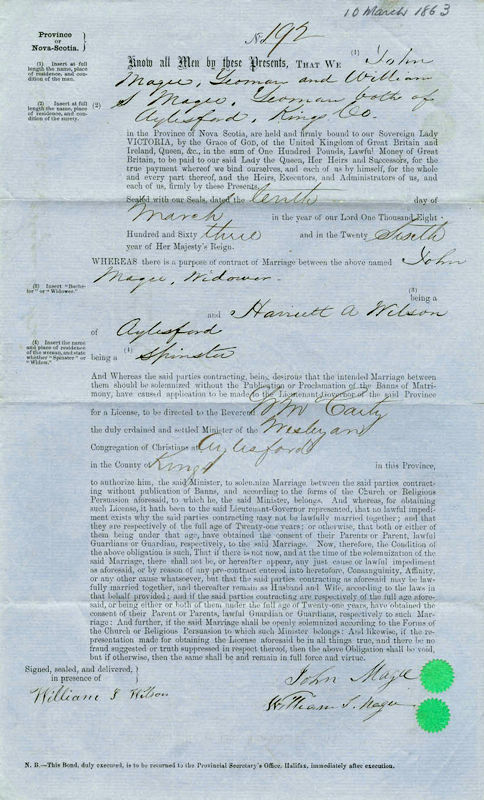 10 March 1863
Province
of
Nova-Scotia.
No 192
(1) Insert at full
length the name, place
of residence, and con-
dition of the man.
(2) Insert at full
length the name, place
of residence, and con-
dition of the surety.
Know all Men by these Presents, THAT WE (1) John
Magee, Yeoman and William
(2) S Magee, Yeoman both of
Aylesford, Kings Co.
in the Province of Nova Scotia, are held and firmly bound to our Sovereign Lady
VICTORIA, by the Grace of GOD, of the United Kingdom of Great Britain and
Ireland, Queen, &c., in the sum of One Hundred Pounds, Lawful Money of Great
Britain, to be paid to our said Lady the Queen, Her Heirs and Successors, for the
true payment whereof we bind ourselves, and each of us by himself, for the whole
and every part thereof, and the Heirs, Executors, and Administrators of us, and
each of us, firmly by these Presents.
Sealed with our Seals, dated the tenth day of
March in the year of our Lord One Thousand Eight
Hundred and Sixty three and in the Twenty Sixth
year of Her Majesty's Reign.
WHEREAS there is a purpose of contract of Marriage between the above named John
Magee, Widower.
(3) Insert "Bache-
lor" or "Widower."
(3)
being a
and Harriett A Wilson
of Aylesford
(4) Insert the name
and place of residence
of the woman, and state
whether "Spinster" or
Widow."
being a (4) Spinster
And Whereas the said parties contracting, being desirous that the intended Marriage between
them should be solemnized without the Publication or Proclamation of the Banns of Matri-
mony, have caused application to be made to the Lieutenant-Governor of the said Province
for a License, to be directed to the Reverend
the duly ordained and settled Minister of the Wesleyan
Congregation of Christians at Aylesford
in the County Kings in this Province,
to authorize him, the said Minister, to solemnize Marriage between the said parties contract-
ing without publication of Banns, and according to the forms of the Church or Religious
Persuasion aforesaid, to which he, the said Minister, belongs. And whereas, for obtaining
such License, it hath been to the said Lieutenant-Governor represented, that no lawful impedi-
ment exists why the said parties contracting may not be lawfully married together; and that
they are respectively of the full age of Twenty-one years; or otherwise, that both or either of
them being under that age, have obtained the consent of their Parents or Parent, lawful
Guardians or Guardian, respectively, to the said Marriage. Now, therefore, the Condition of
the above obligation is such, That if there is not now, and at the time of the solemnization of the
said Marriage, there shall not be, or hereafter appear, any just cause or lawful impediment
as aforesaid, or by reason of any pre-contract entered into heretofore, Consanguinity, Affinity,
or any other cause whatsoever, but that the said parties contracting as aforesaid may be law-
fully married together, and thereafter remain as Husband and Wife, according to the laws in
that behalf provided; and if the said parties contracting are respectively of the full age afore-
said, or being either or both of them under the full age of Twenty-one years, have obtained the
consent of their Parent or Parents, lawful Guardian or Guardians, respectively to such Mar-
riage: And further, if the said Marriage shall be openly solemnized according to the Forms of
the Church or Religious Persuasion to which such Minister belongs: And likewise, if the re-
presentation made for obtaining the License aforesaid be in all things true, and there be no
fraud suggested or truth suppressed in respect thereof, then the above Obligation shall be void,
but if otherwise, then the same shall be and remain in full force and virtue.
Signed, sealed, and delivered,
in presence of
William J Wilson
John Magee
William S. Magee
N. B.—This Bond, duly executed, is to be returned to the Provincial Secretary's Office, Halifax, immediately after execution.